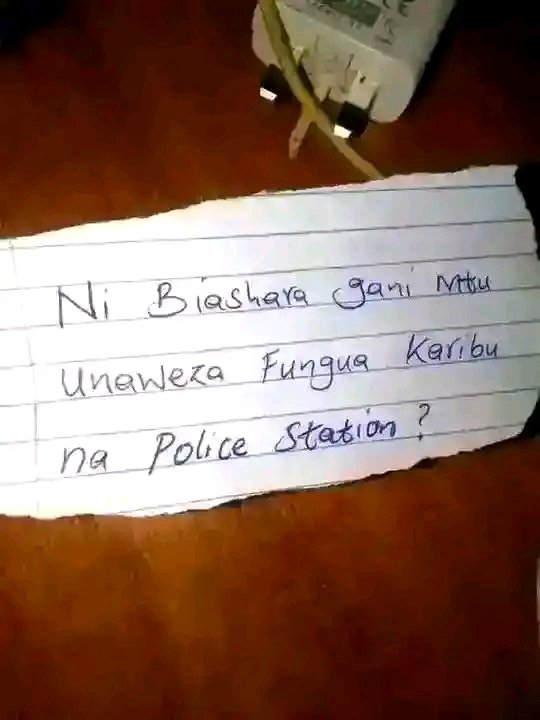 Ni Biashara gani Mtu
Unaweza Fungua Karibu
na Police Station?